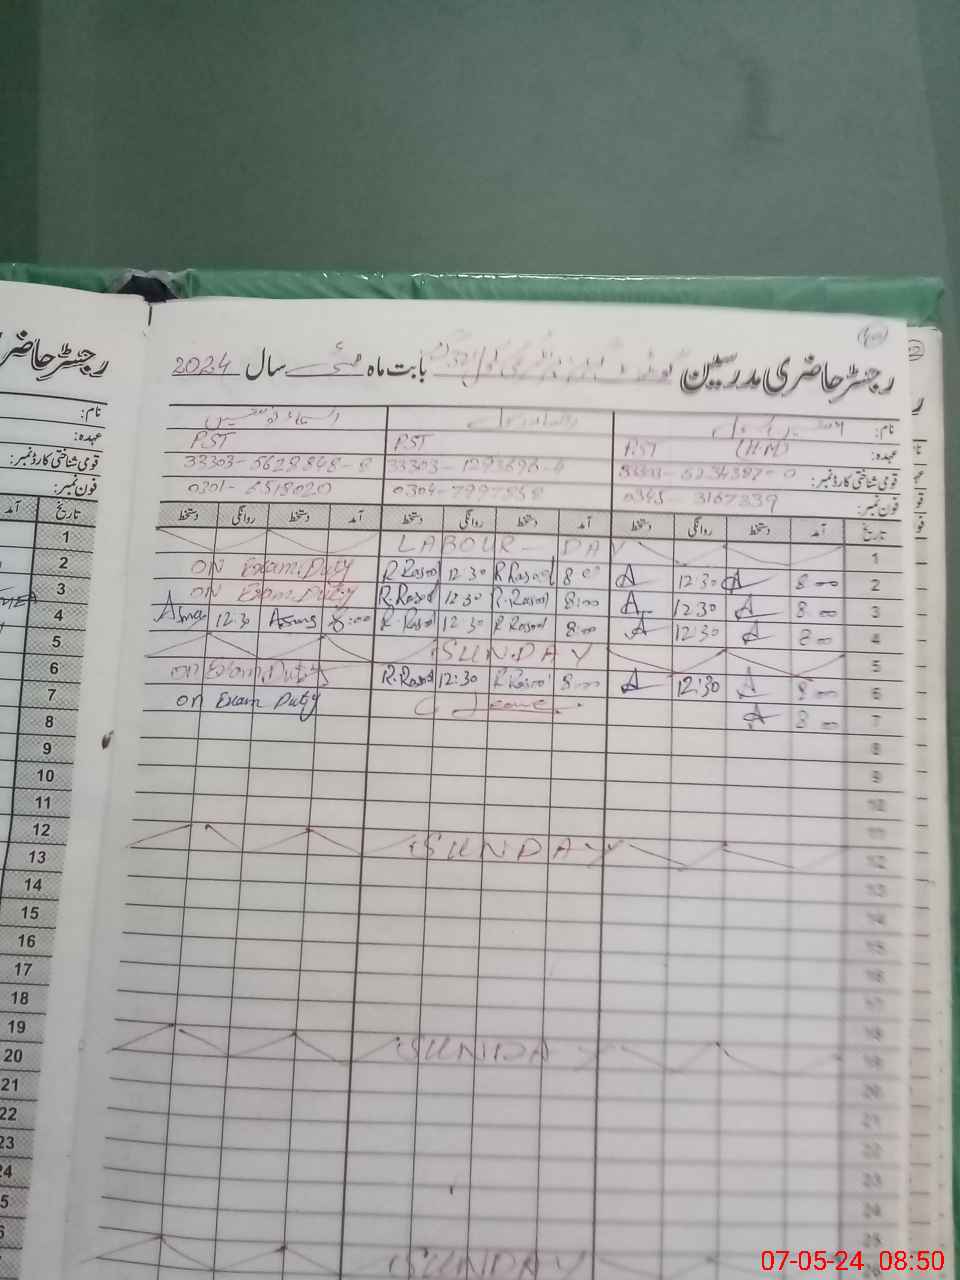 رجسٹر حاضری مدرسین بابت ماہ مئی سال 2024
نام:
عہدہ: PST (H.M) PST PST
قومی شناختی کارڈ نمبر: 33303-5628848-8
فون نمبر: 0345-3167339 0301-6518020
تاریخ آمد دستخط روانگی دستخط آمد دستخط روانگی دستخط آمد دستخط روانگی دستخط
1 LABOUR-DAY
2 8:00 A 12:30 A 8:00 R.Rasool 12:30 R.Rasool ON Exam.Duty
3 8:00 A 12:30 A 8:00 R.Rasool 12:30 R.Rasool ON Exam.Duty
4 8:00 A 12:30 A 8:00 R.Rasool 12:30 R.Rasool 8:00 Asma 12:30 Asma
5 SUNDAY
6 8:00 A 12:30 A 8:00 R.Rasool 12:30 R.Rasool on Exam Duty
7 8:00 A C Leave on Exam Duty
8
9
10
11
12 SUNDAY
13
14
15
16
17
18
19 SUNDAY
20
21
22
23
24
25
26 SUNDAY
رجسٹر حاضر
نام:
عہدہ:
قومی شناختی کارڈ نمبر:
فون نمبر:
تاریخ آمد
1
2
3
4
5
6
7
8
9
10
11
12
13
14
15
16
17
18
19
20
21
22
23
07-05-24 08:50